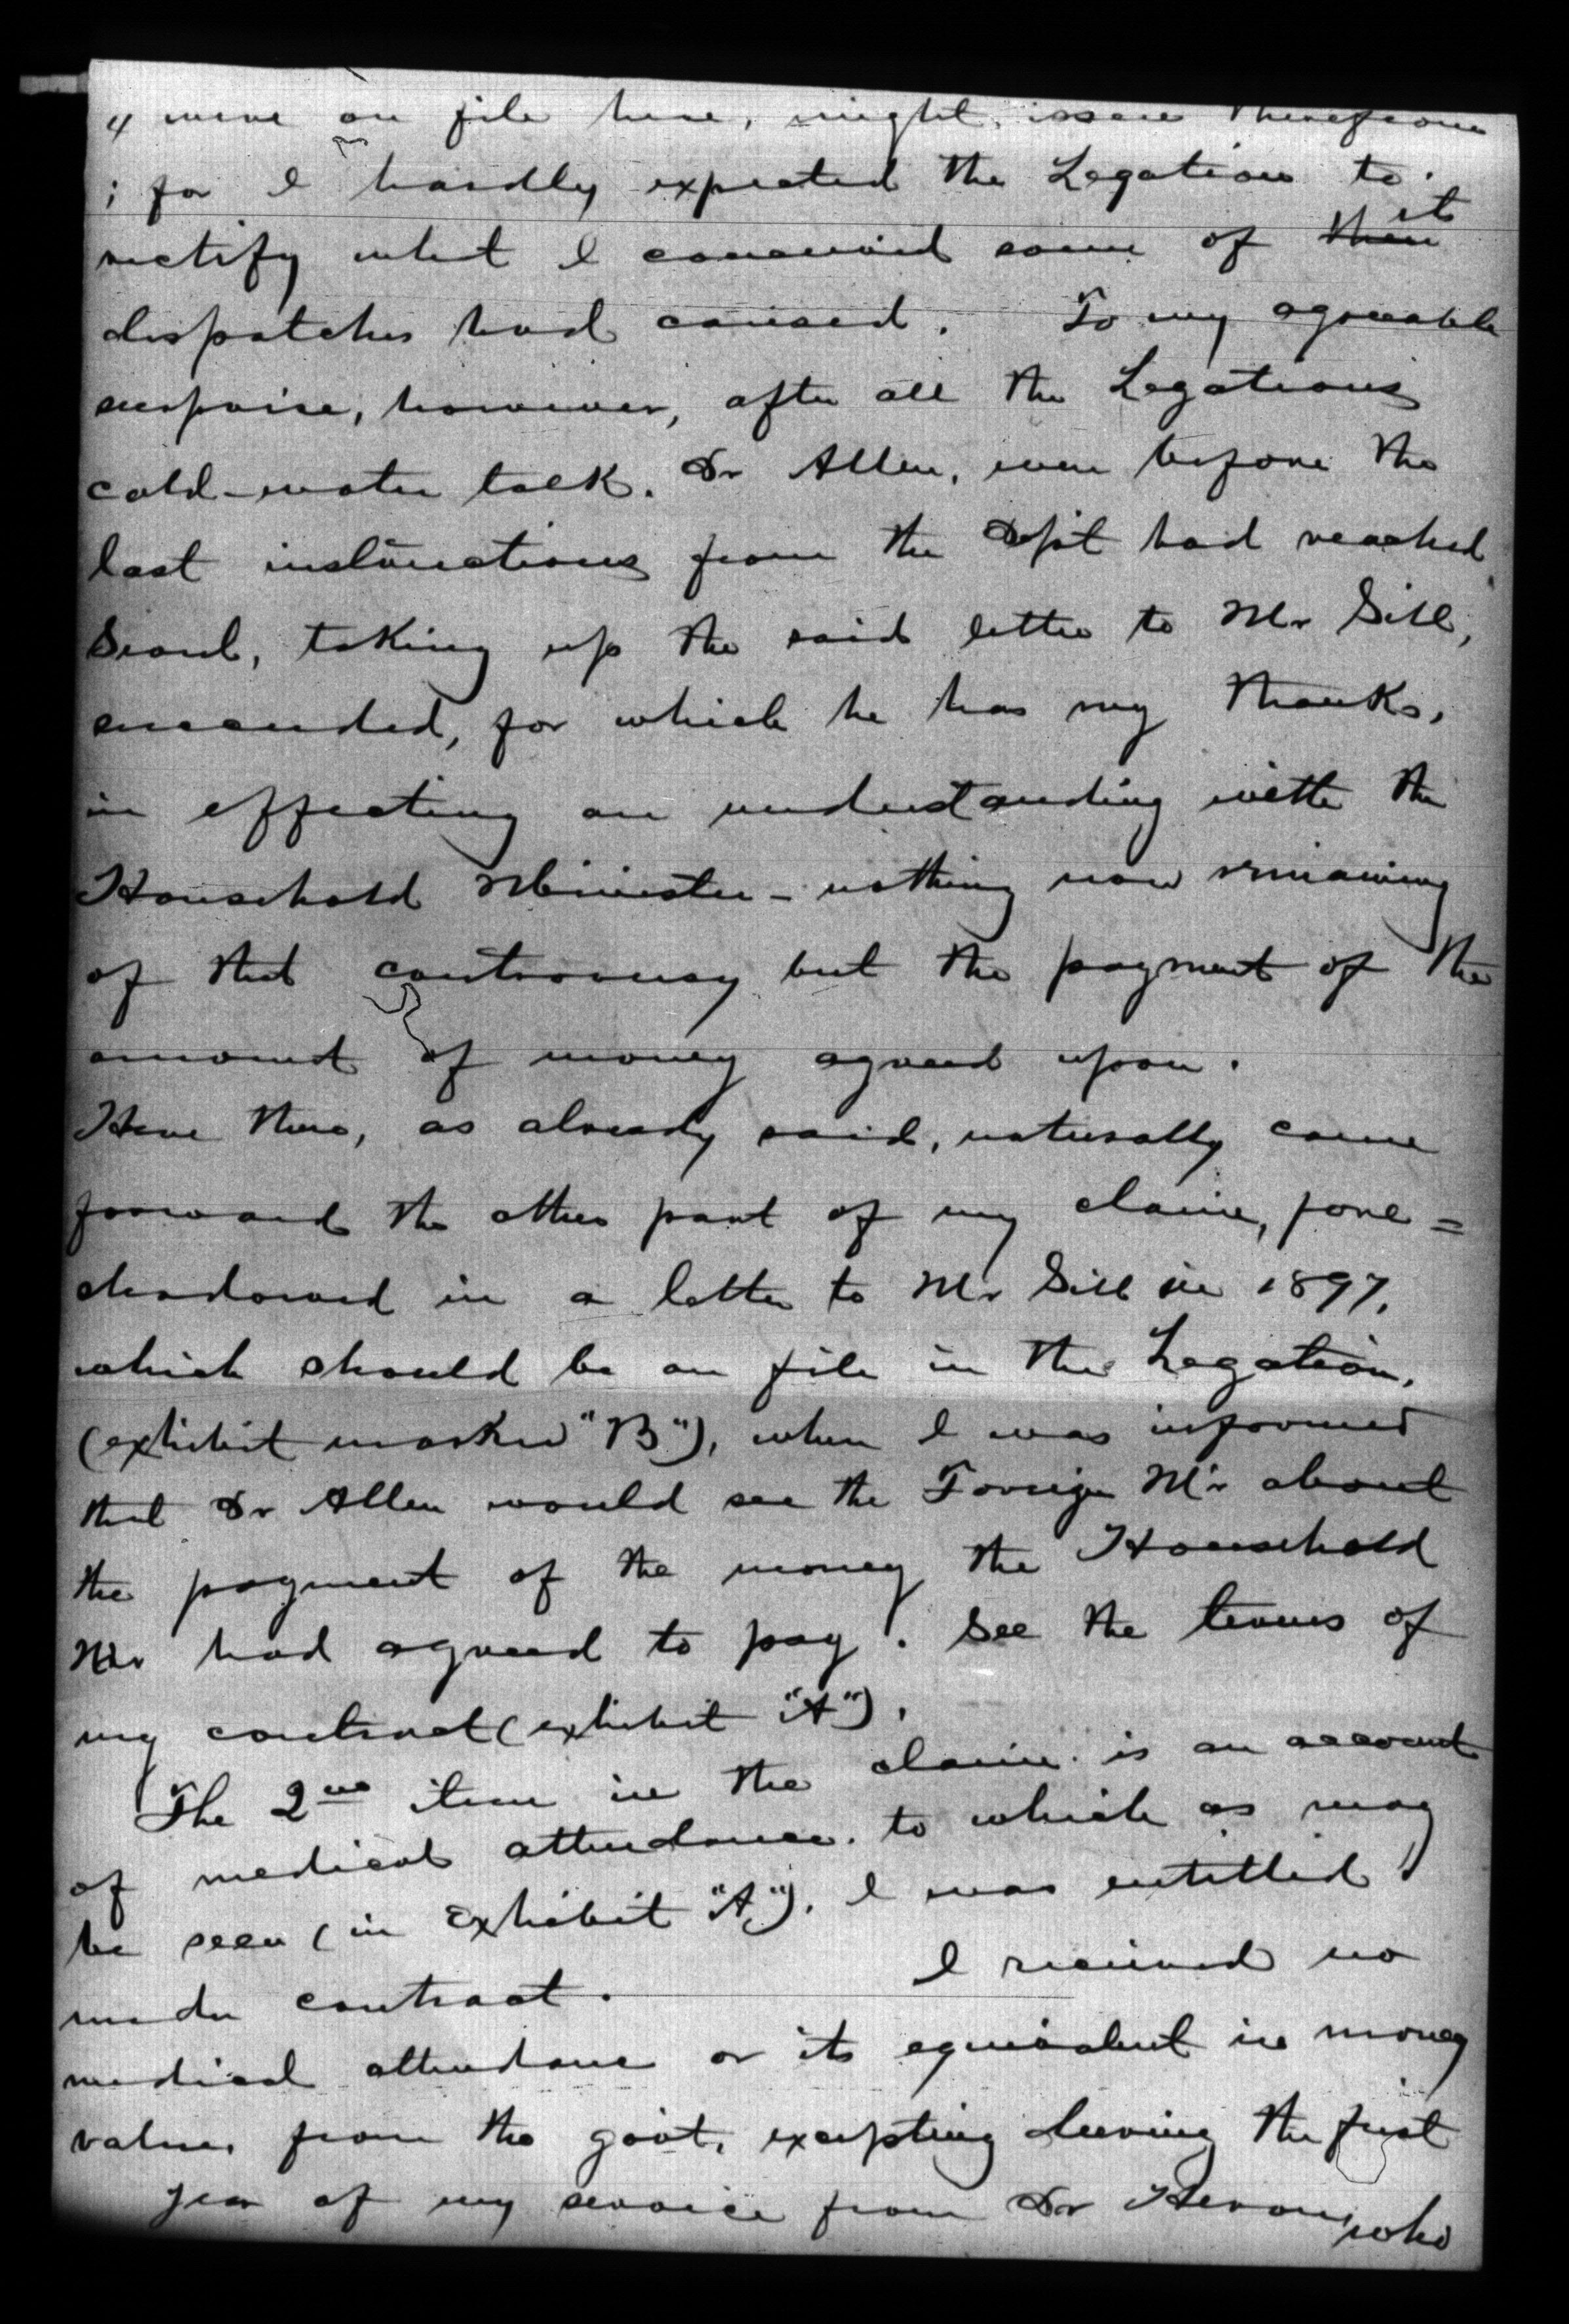 & were on file here, might issue therefrom
; for I hardly expected the Legation to
rectify what I conceived some of it
dispatches had caused. To my agreeable
surprise, however, after all the Legations
cold-water talk. Dr Allen, even before the
last instructions from the Dep't had reached
Seoul, taking up the said letter to Mr Sill,
succeeded, for which he has my thanks,
in effecting an understanding with the
Household Minister - nothing now remaining
of that controversy but the payment of the
amount of money agreed upon.
Here then, as already said, naturally came
forward the other part of my claim, fore=
shadowed in a letter to Mr Sill in 1897,
which should be on file in the Legation,
(exhibit marked "B"), when I was informed
that Dr Allen would see the Foreign M'r about
the payment of the money the Household
M'r had agreed to pay. See the terms of
my contract (exhibit "A").
The 2nd item in the claim is an account
of medical attendance. to which as may
be seen (in Exhibit "A"), I was entitled
under contract. I received no
medical attendance or its equivalent in money
value, from the gov't, excepting during the first
year of my service from Dr Heron, who